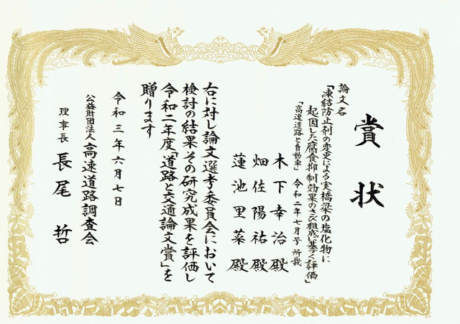 賞状
論文名
「凍結防止剤の変更による実橋梁の塩化物に
起因した腐食抑制効果のさび外観に基づく評価」
「高速道路と自動車」令和二年七月号 所載
木下幸治殿
畑佐陽祐殿
蓮池里菜殿
右に対し論文選考委員会において
検討の結果その研究成果を評価し
令和二年度「道路と交通論文賞」を
贈ります
令和三年六月七日
公益財団法人 高速道路調査会
理事長 長尾 哲